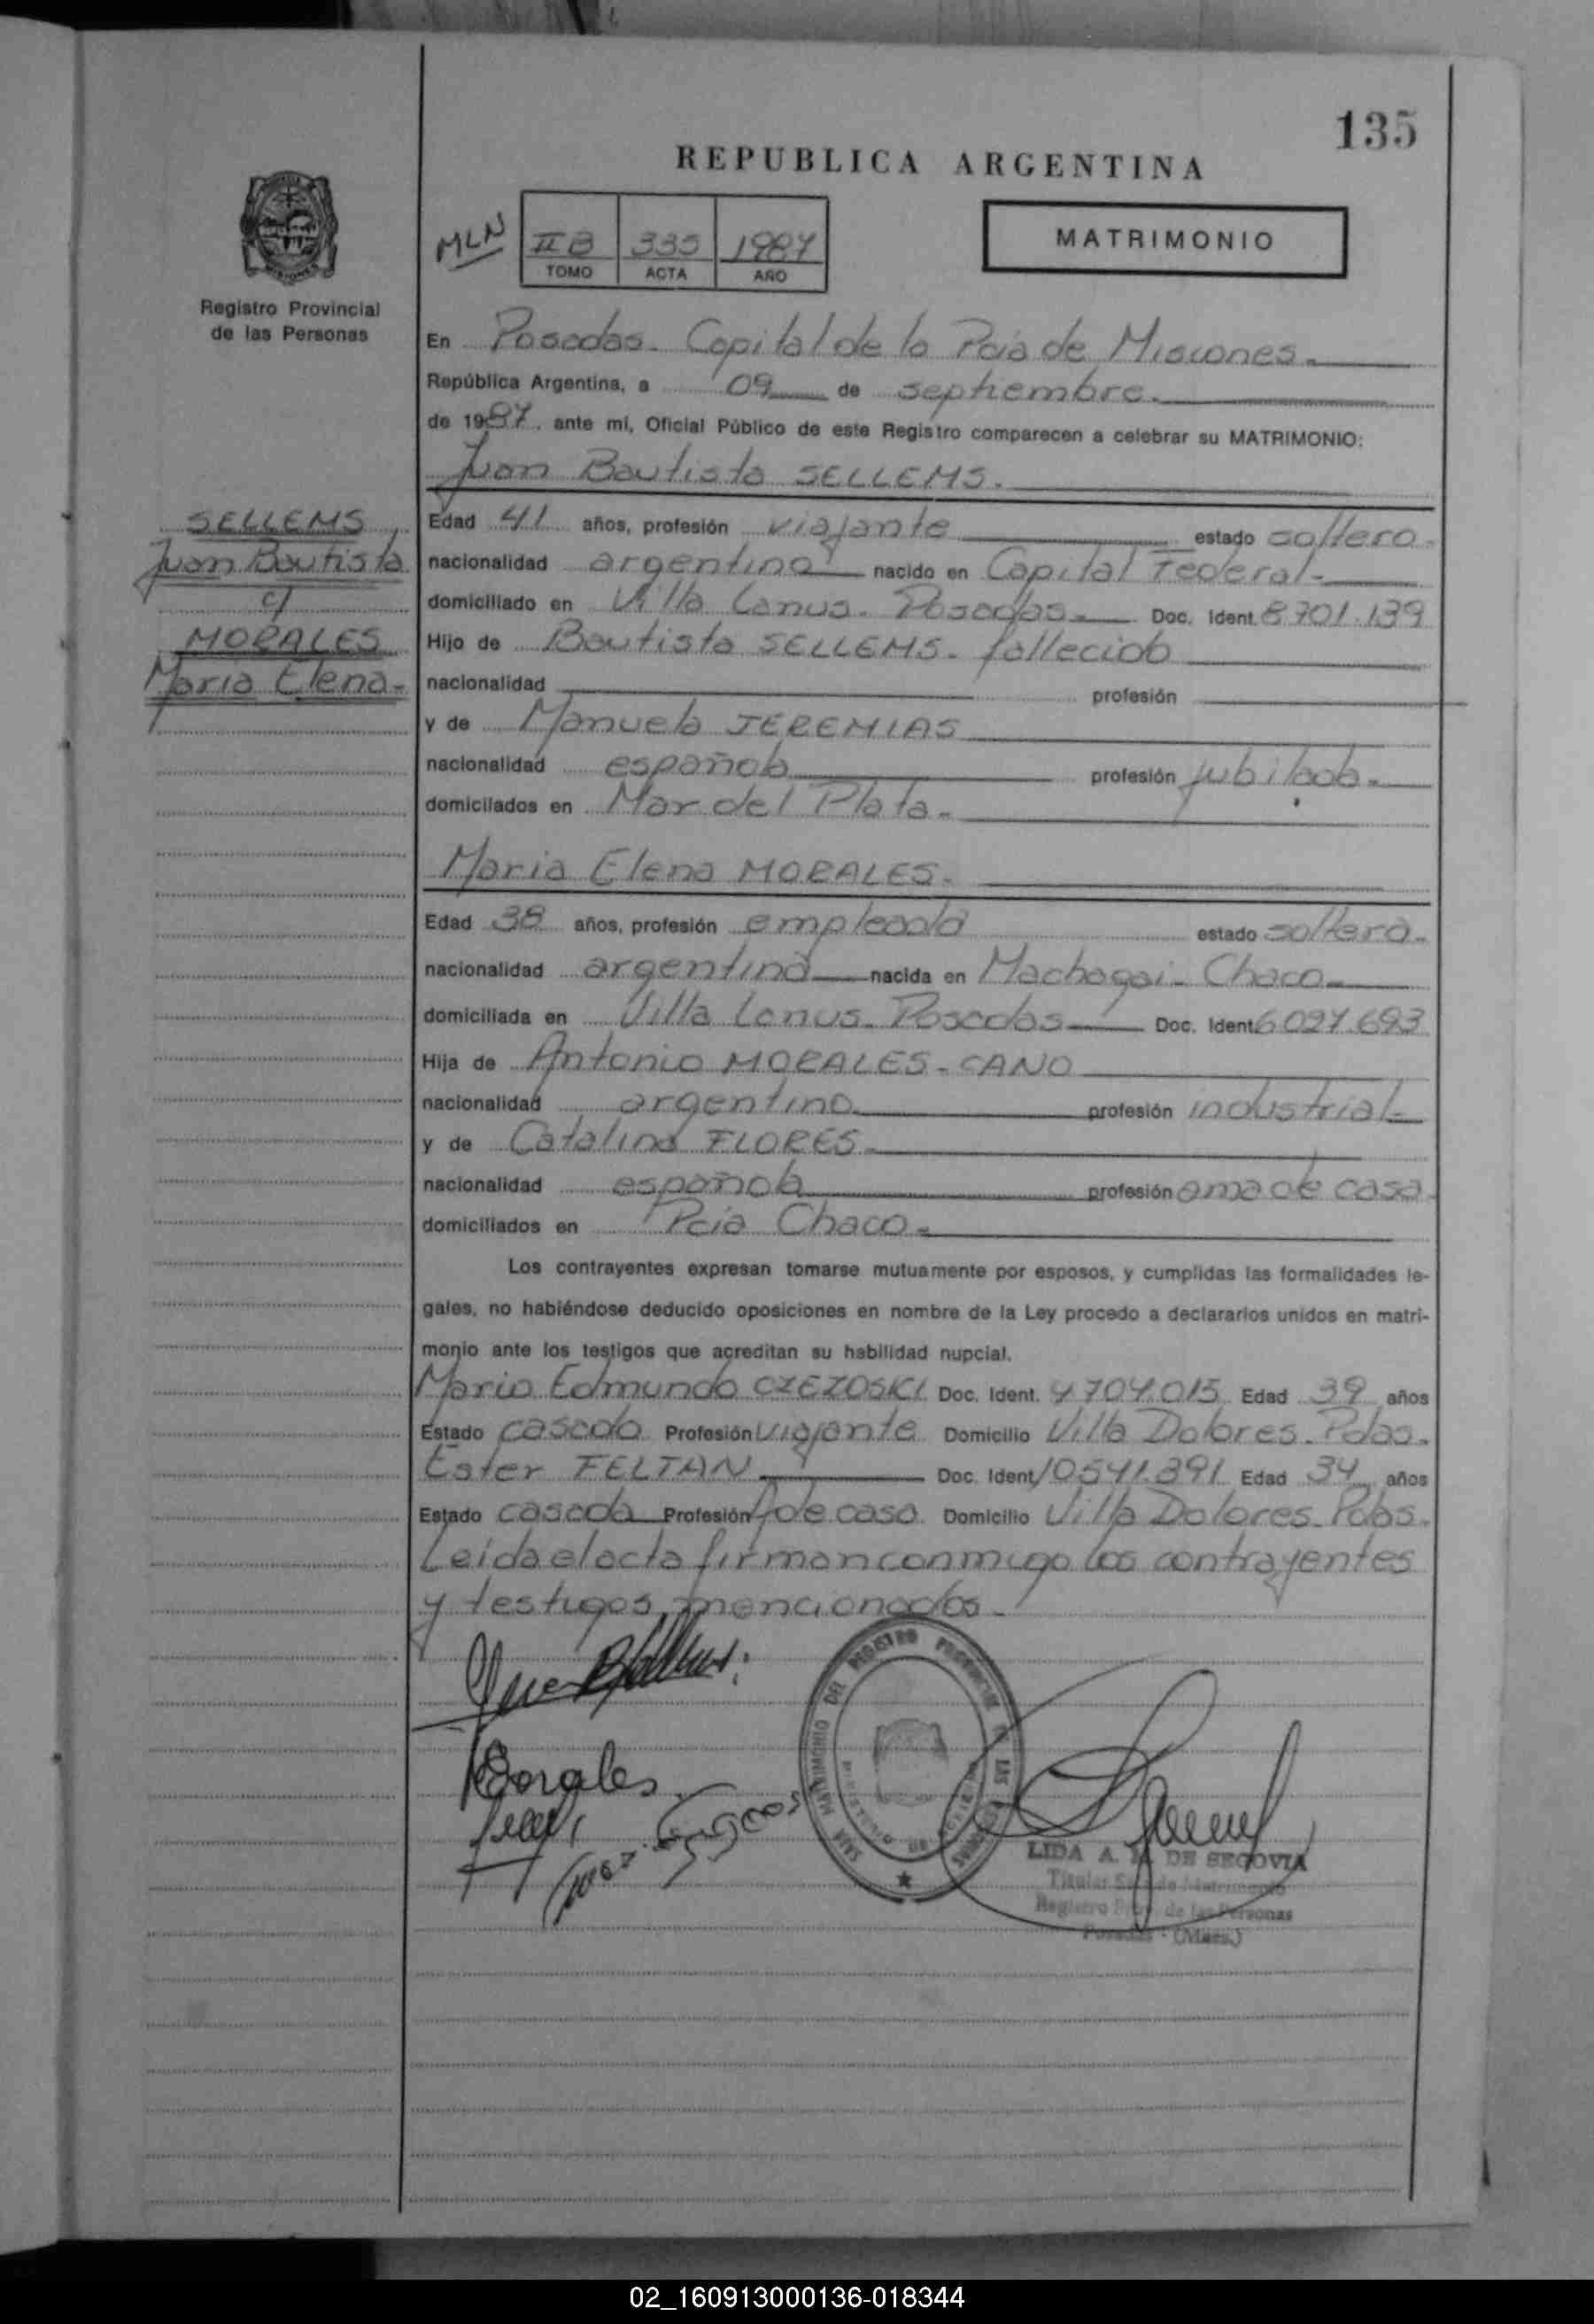 135
REPUBLICA ARGENTINA
MLN
II B 335 1987
TOMO ACTA AÑO
MATRIMONIO
Registro Provincial
de las Personas
En Posadas. Capital de la Pcia de Misiones.
República Argentina, a 09 de septiembre.
de 1987, ante mí, Oficial Público de este Registro comparecen a celebrar su MATRIMONIO:
Juan Bautista SELLEMS.
SELLEMS
Juan Bautista
c/
MORALES
Maria Elena-
Edad 41 años, profesión viajante estado soltero-
nacionalidad argentina nacido en Capital Federal-
domiciliado en Villa Lanus. Posadas- Doc. Ident. 8701.139
Hijo de Bautista SELLEMS- fallecido
nacionalidad profesión
y de Manuela JEREMIAS
nacionalidad española profesión jubilada-
domicilados en Mar del Plata-
Maria Elena MORALES-
Edad 38 años, profesión empleada estado soltera-
nacionalidad argentina nacida en Machagai- Chaco-
domiciliada en Villa Lanus- Posadas- Doc. Ident. 6 027.693
Hija de Antonio MORALES-CANO
nacionalidad argentino profesión industrial-
y de Catalina FLORES-
nacionalidad española profesión ama de casa-
domiciliados en Pcia Chaco-
Los contrayentes expresan tomarse mutuamente por esposos, y cumplidas las formalidades le-
gales, no habiéndose deducido oposiciones en nombre de la Ley procedo a declararlos unidos en matri-
monio ante los testigos que acreditan su habilidad nupcial.
Mario Edmundo CZEZOSKI Doc. Ident. 4 704.015 Edad 39 años
Estado casado Profesión viajante Domicilio Villa Dolores- Pdas-
Ester FELTAN Doc. Ident. 10541.391 Edad 34 años
Estado casada Profesión A de casa Domicilio Villa Dolores- Pdas.
Leida el acta firman conmigo los contrayentes
y testigos mencionados-
Morales
SALA MATRIMONIO DEL REGISTRO PROVINCIAL DE LAS PERSONAS
LIDA A. DE SEGOVIA
Titular Sala de Matrimonio
Registro Prov. de las Personas
Posadas - (Mnes.)
02_160913000136-018344